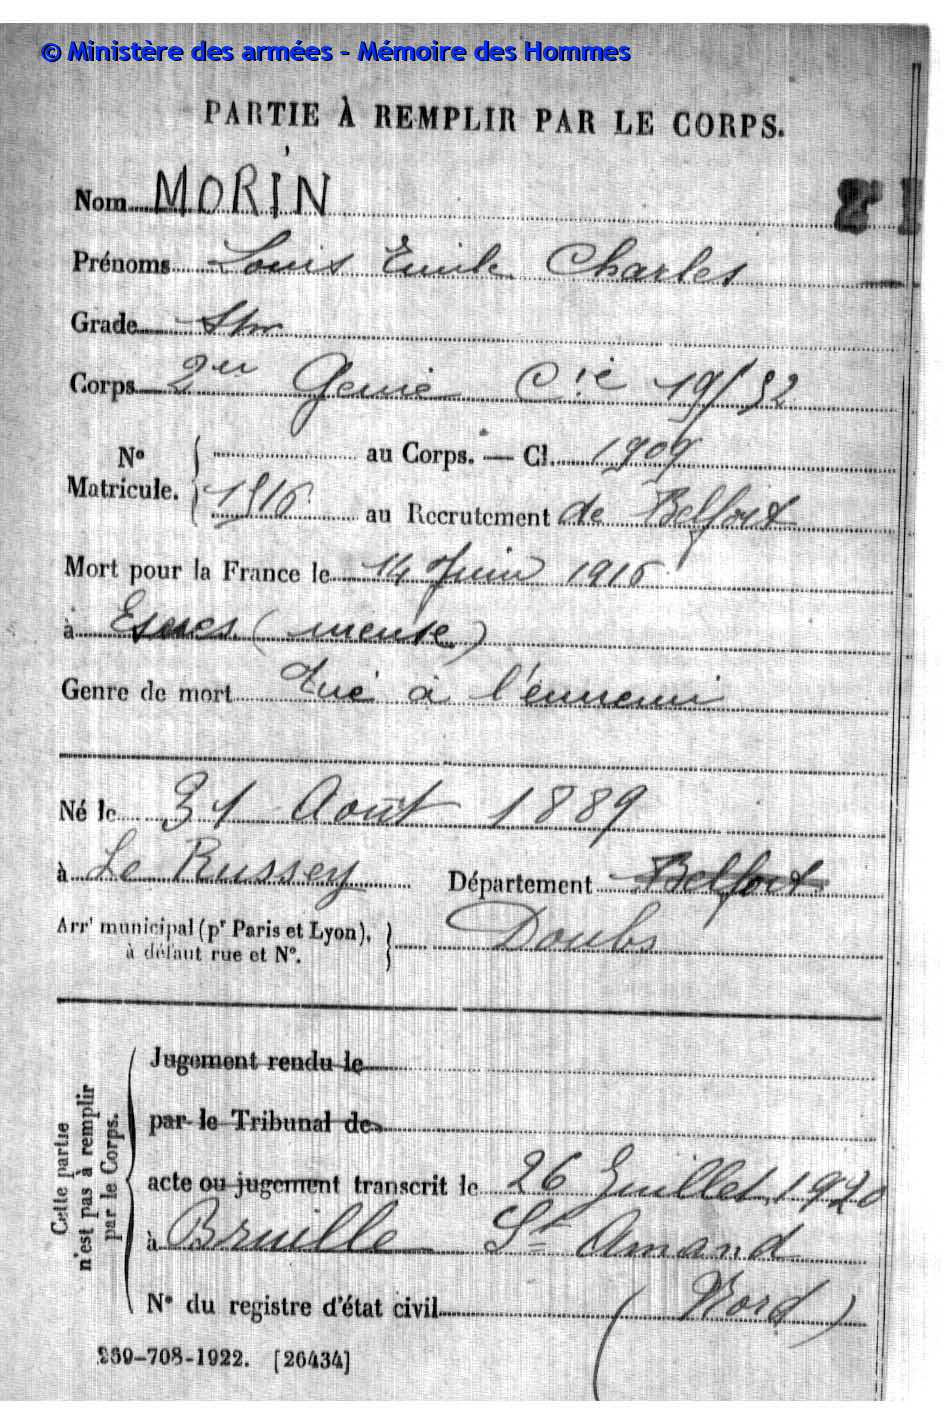 © Ministère des armées - Mémoire des Hommes
PARTIE À REMPLIR PAR LE CORPS.
Nom MORIN
Prénoms Louis Emile Charles
Grade Spr
Corps 2eu Génie Cie 19/52
N° Matricule. { au Corps. — Cl. 1909
1916 au Recrutement de Belfort
Mort pour la France le 14 Juin 1916
à Esnes (meuse)
Genre de mort Tué à l'ennemi
Né le 31 Août 1889
à Le Russey Département Belfort
Arrt municipal (pr Paris et Lyon), } Doubs
à défaut rue et N°.
Cette partie n'est pas à remplir par le Corps.
Jugement rendu le
par le Tribunal de
acte ou jugement transcrit le 26 Juillet 1920
à Bruille St Amand
N° du registre d'état civil (Nord)
259-708-1922. [26434]